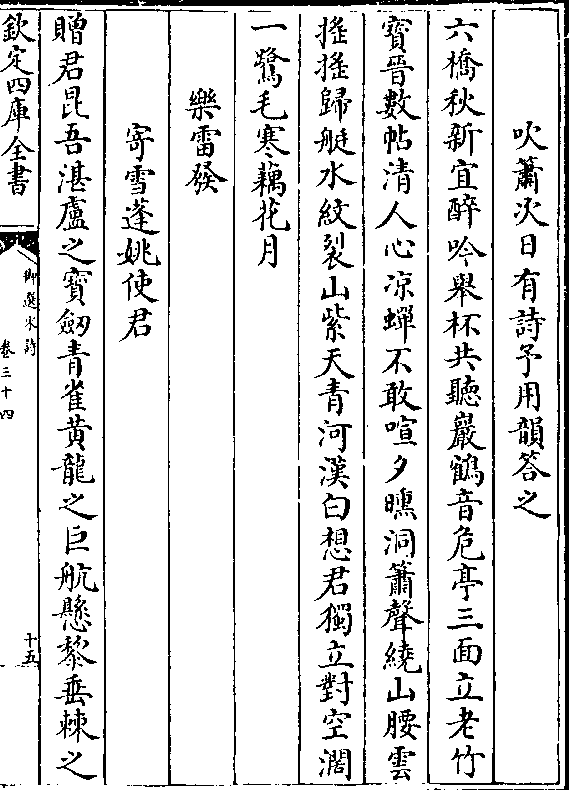 吹簫次日有詩予用韻答之
六橋秋新宜醉吟舉杯共聽巖鶴音危亭三面立老竹
寶晉數帖清人心凉蟬不敢喧夕曛洞簫聲繞山腰雲
搖搖歸艇水紋裂山紫天青河漢白想君獨立對空濶
一鷺毛寒藕花月
樂雷發
寄雪蓬姚使君
贈君昆吾湛盧之寶劒青雀黃龍之巨航懸黎垂棘之
欽定四庫全書
御選宋詩
卷三十四
十五